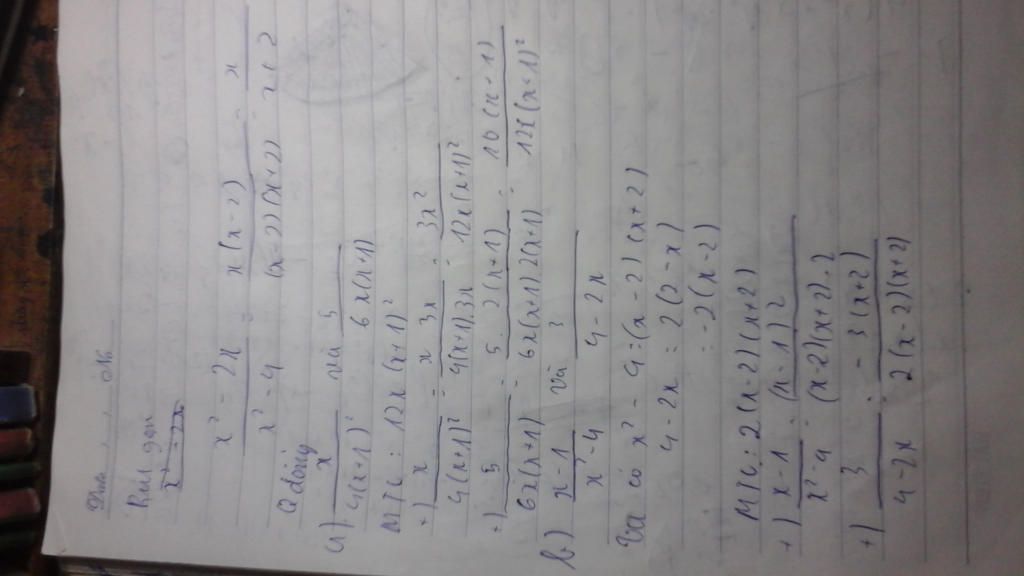 Date / / No
Rút gọn
x² - 2x
x² - 2x / x² - 4 = x(x-2) / (x-2)(x+2) = x / x+2
Q đồng
a) x / 4(x+1)² và 5 / 6x(x+1)
MTC: 12x(x+1)²
+) x / 4(x+1)² = x.3x / 4(x+1).3x = 3x² / 12x(x+1)²
+) 5 / 6x(x+1) = 5.2(x+1) / 6x(x+1)2(x+1) = 10(x+1) / 12x(x+1)²
b) x-1 / x²-4 và 3 / 4-2x
Ta có x² - 4 = (x-2)(x+2)
4 - 2x = 2(2-x)
= -2(x-2)
MTC: 2(x-2)(x+2)
+) x-1 / x²-4 = (x-1).2 / (x-2)(x+2).2
+) 3 / 4-2x = -3(x+2) / 2(x-2)(x+2)